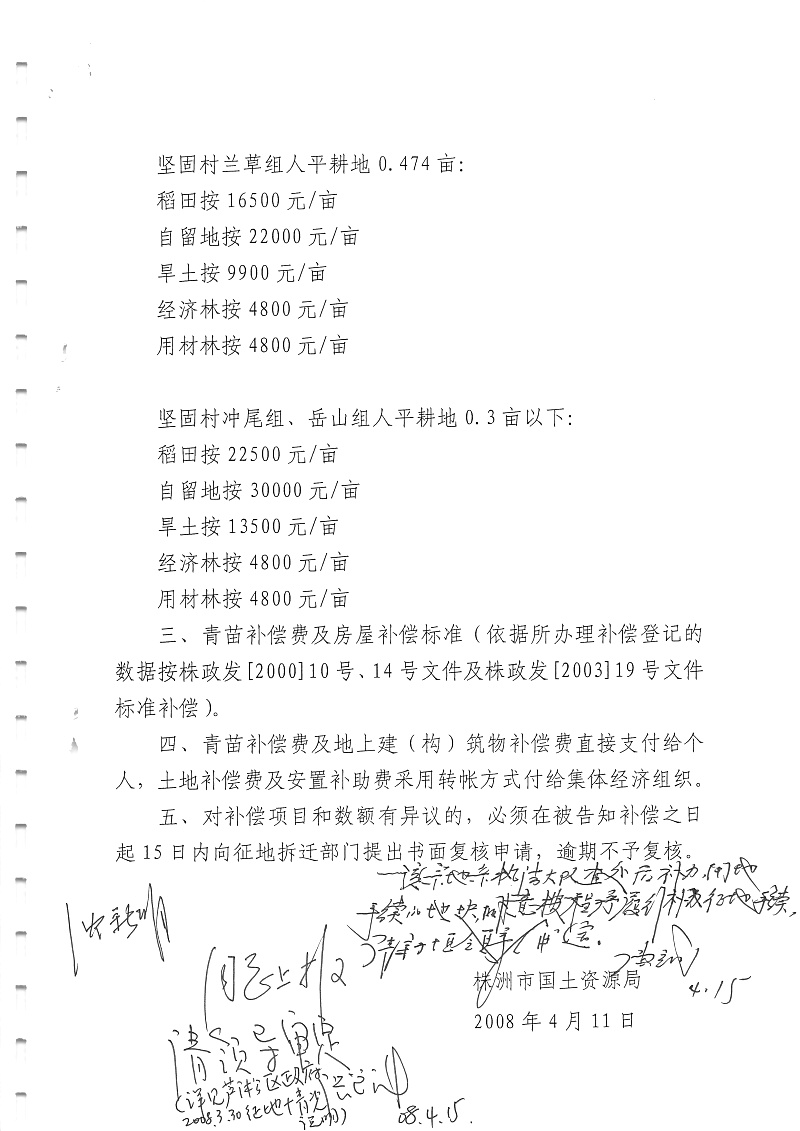 坚固村兰草组人平耕地 0.474 亩:
稻田按 16500 元/亩
自留地按 22000 元/亩
旱土按 9900 元/亩
经济林按 4800 元/亩
用材林按 4800 元/亩
坚固村冲尾组、岳山组人平耕地 0.3 亩以下:
稻田按 22500 元/亩
自留地按 30000 元/亩
旱土按 13500 元/亩
经济林按 4800 元/亩
用材林按 4800 元/亩
三、青苗补偿费及房屋补偿标准（依据所办理补偿登记的
数据按株政发[2000]10 号、14 号文件及株政发[2003]19 号文件
标准补偿）。
四、青苗补偿费及地上建（构）筑物补偿费直接支付给个
人，土地补偿费及安置补助费采用转帐方式付给集体经济组织。
五、对补偿项目和数额有异议的，必须在被告知补偿之日
起 15 日内向征地拆迁部门提出书面复核申请，逾期不予复核。
手续
同意上报
株洲市国土资源局
4.15
2008 年 4 月 11 日
请领导审定
(详见芦淞区政府
2008.3.30征地情况
说明)
08.4.15.